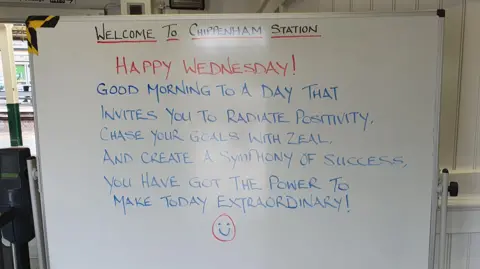 WELCOME TO CHIPPENHAM STATION
HAPPY WEDNESDAY!
GOOD MORNING TO A DAY THAT
INVITES YOU TO RADIATE POSITIVITY,
CHASE YOUR GOALS WITH ZEAL.
AND CREATE A SYMPHONY OF SUCCESS,
YOU HAVE GOT THE POWER TO
MAKE TODAY EXTRAORDINARY!